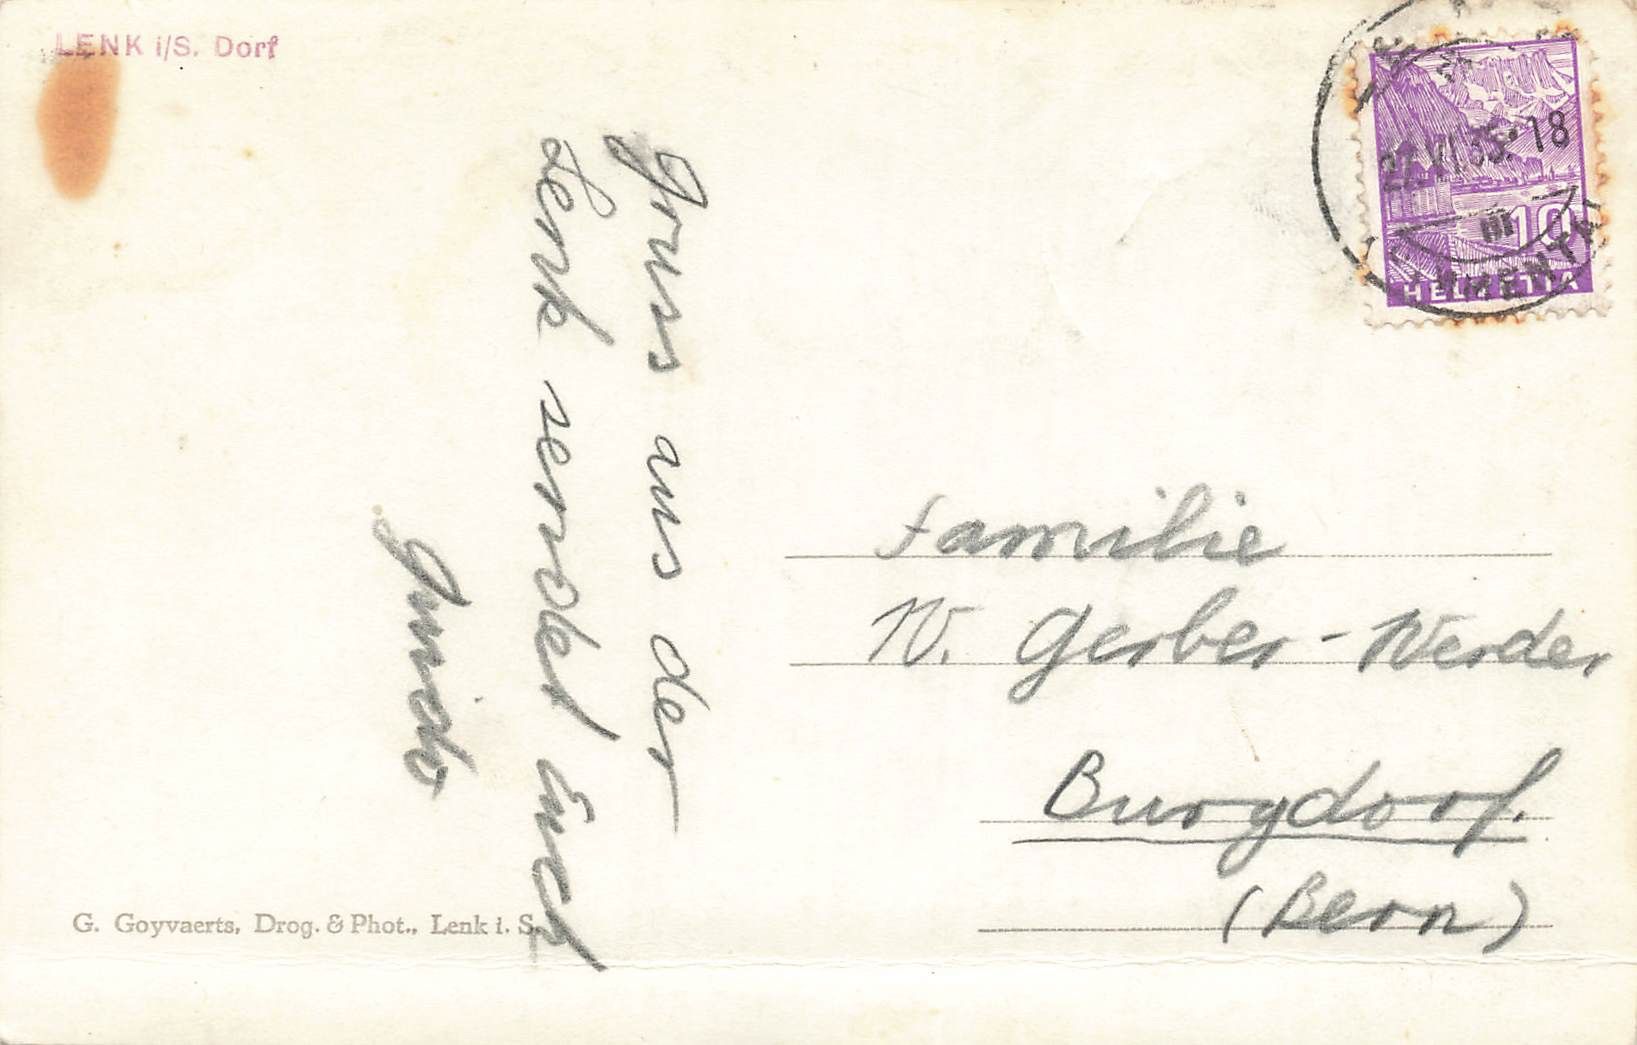 LENK i/S. Dorf
27.VI.35.18
10
HELVETIA
Gruss aus der
Lenk sendet Euch
Guido
Familie
W. Gerber-Werder
Burgdorf.
(Bern)
G. Goyvaerts, Drog. & Phot., Lenk i. S.